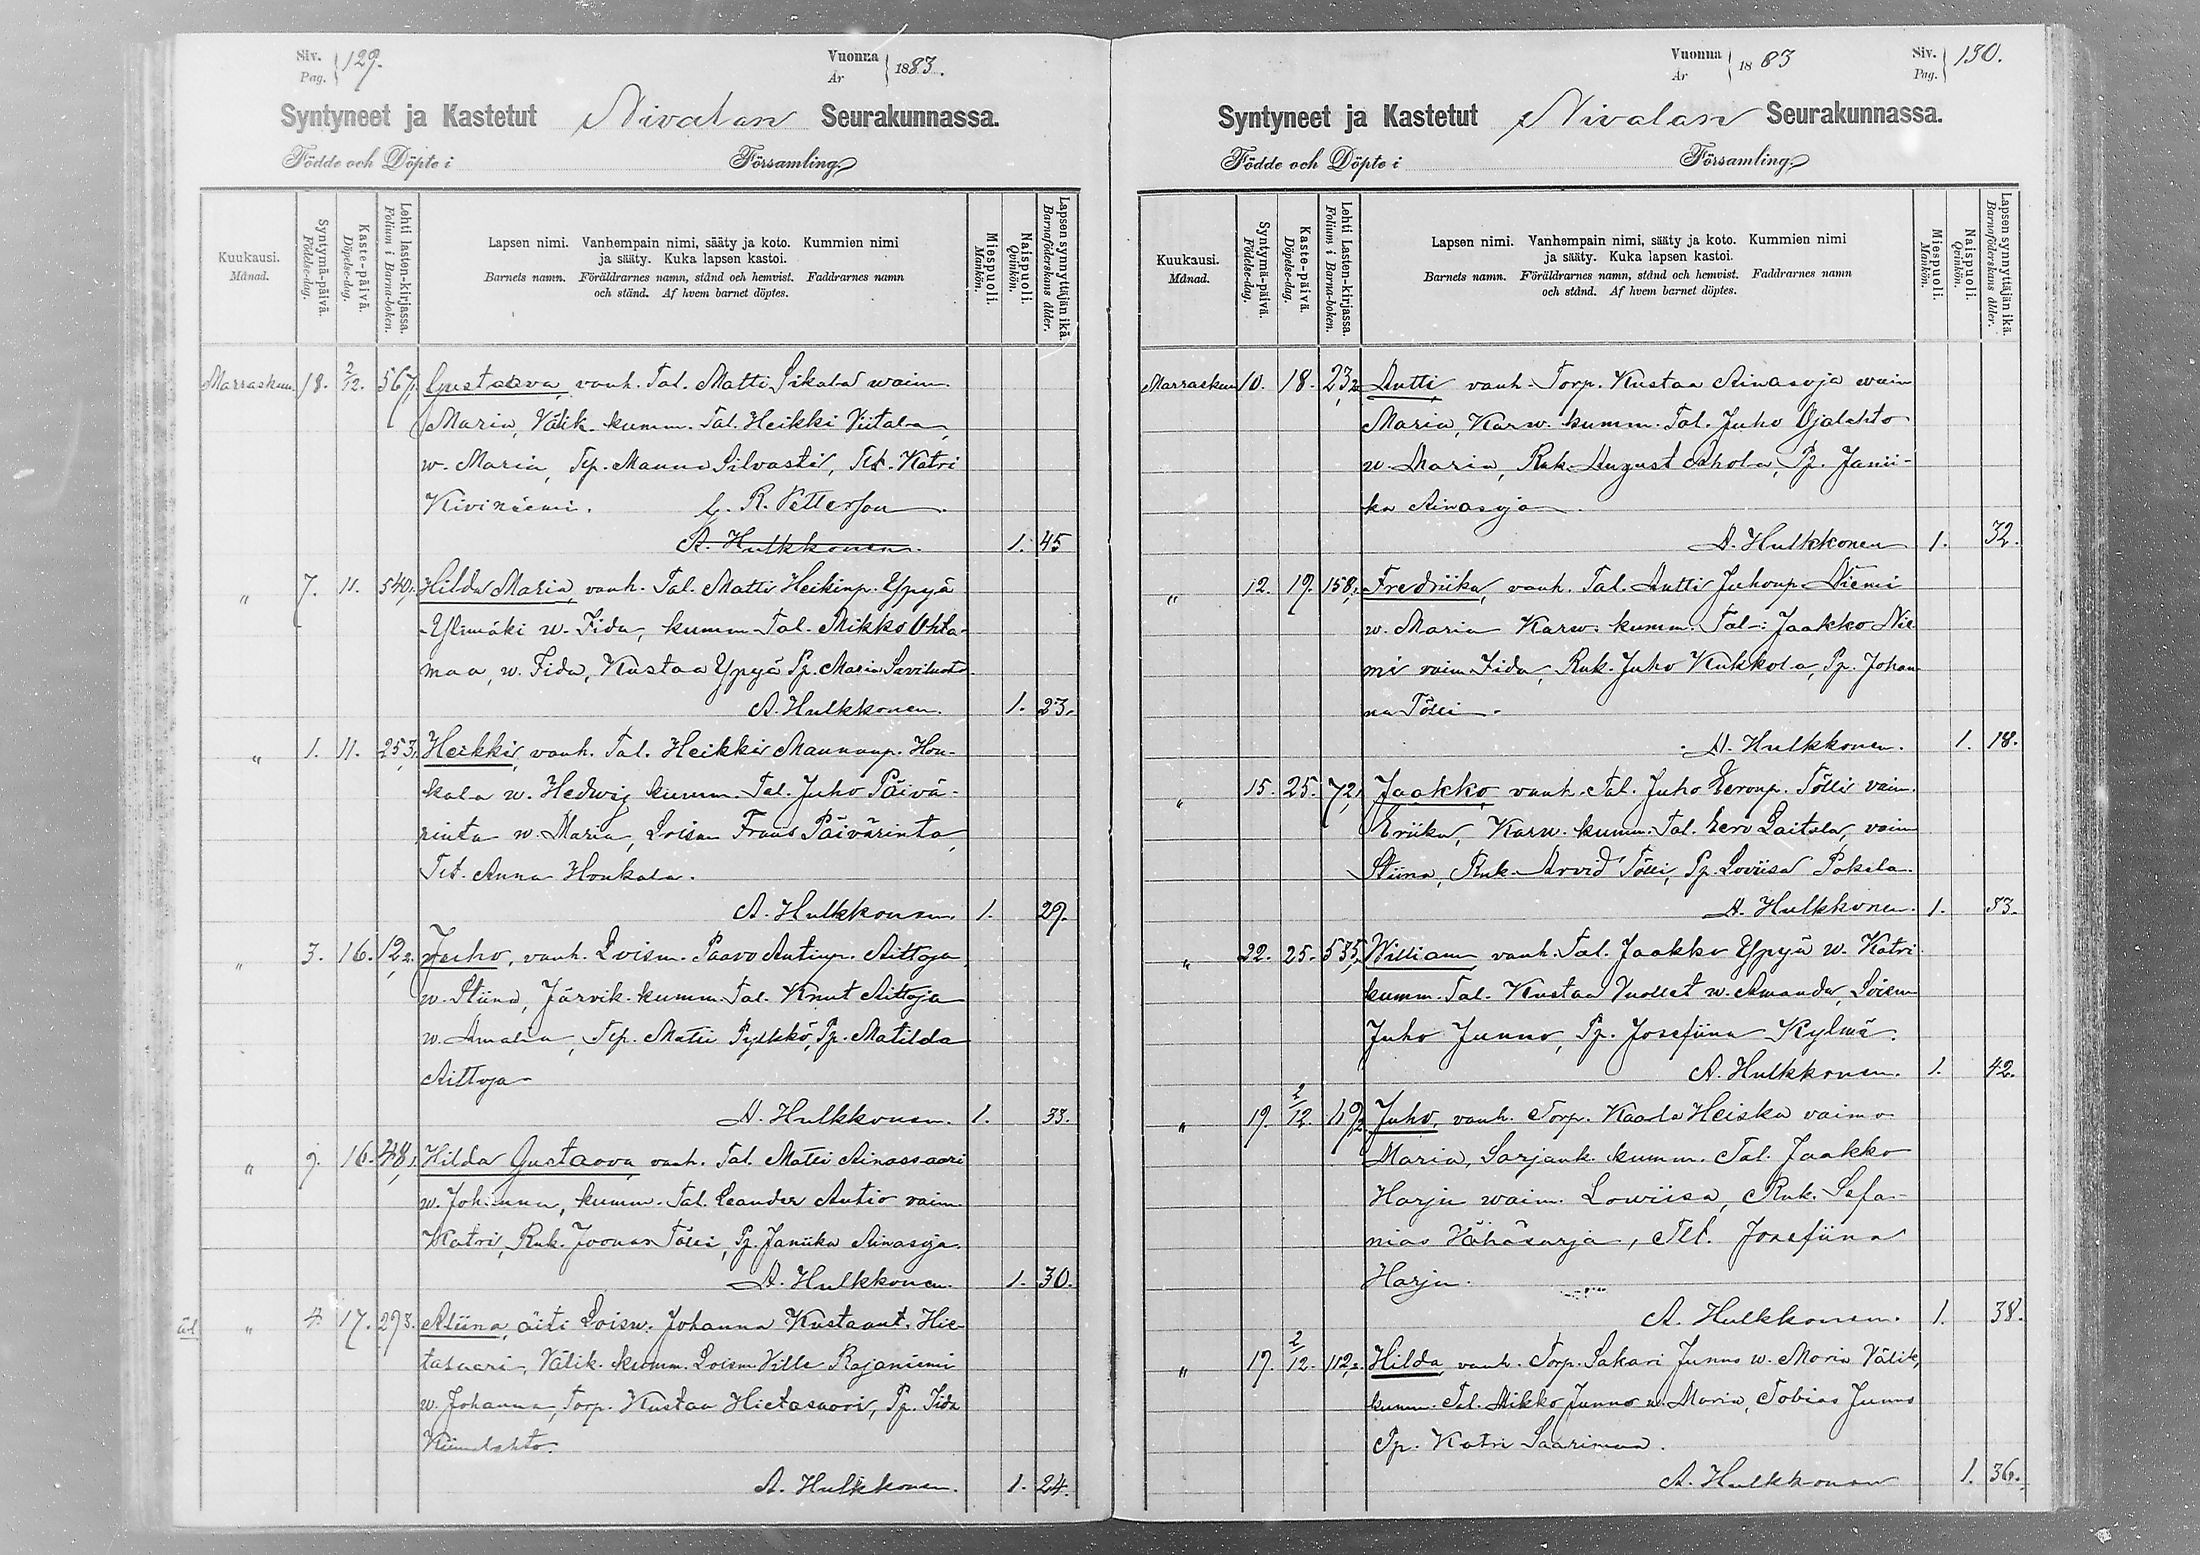 Siv. Pag. 129.
Vuonna År 1883.
Syntyneet ja Kastetut Nivalan Seurakunnassa.
Födde och Döpte i Församling.
Kuukausi. Månad.
Syntymä-päivä. Födelse-dag.
Kaste-päivä. Döpelse-dag.
Lehti lasten-kirjassa. Folium i Barna-boken.
Lapsen nimi. Vanhempain nimi, sääty ja koto. Kummien nimi
ja sääty. Kuka lapsen kastoi.
Barnets namn. Föräldrarnes namn, stånd och hemvist. Faddrarnes namn
och stånd. Af hvem barnet döptes.
Miespuoli. Mankön.
Naispuoli. Qvinkön.
Lapsen synnyttäjän ikä. Barnaföderskans ålder.
Marraskuu. 18. 2/12. 567, Gustaava, vanh. Tal. Matti Sikala waim
Maria, Välik. kumm. Tal. Heikki Viitala,
w. Maria, Tp. Mauno Silvasti, Tlt. Katri
Kiviniemi. R. Petterson.
A. Hulkkonen. 1. 45
" 7. 11. 540, Hilda Maria, vanh. Tal. Matti Heikinp. Yppyä
Ylimäki w. Fida, kumm. Tal. Mikko Uhta-
maa, w. Fida, Kustaa Yppyä Pz. Maria Saviluoto
A. Hulkkonen. 1. 23.
" 1. 11. 253, Heikki, vanh. Tal. Heikki Maunonp. Hon-
kala w. Hedwig kumm. Tal. Juho Päivä-
rinta w. Maria, Loism Frans Päivärinta,
Tlt. Anna Honkala.
A. Hulkkonen. 1. 29.
" 3. 16. 12,2. Juho, vanh. Loism. Paavo Antinp. Aittoja
w. Stiina, Järvik. kumm. Tal. Knut Aittoja
w. Amalia, Tlp. Matti Pylkkö, Pz. Matilda
Aittoja
A. Hulkkonen. 1. 33.
" 9. 16. 48, Hilda Gustaava, vanh. Tal. Matti Ainassaari
w. Johanna, kumm. Tal. Leander Autio vaim.
Katri, Rnk. Joonas Tölli, Pz. Janiika Ainasoja.
A. Hulkkonen. 1. 30.
äl. " 4. 17. 293. Aliina, äiti Loisn. Johanna Kustaant. Hie-
tasaari, Välik. kumm. Loism Ville Rajaniemi
w. Johanna, Torp. Kustaa Hietasaari, Pz. Iida
A. Hulkkonen. 1. 24.
Vuonna År 1883
Siv. Pag. 130.
Syntyneet ja Kastetut Nivalan Seurakunnassa.
Födde och Döpte i Församling.
Kuukausi. Månad.
Syntymä-päivä. Födelse-dag.
Kaste-päivä. Döpelse-dag.
Lehti Lasten-kirjassa. Folium i Barna-boken.
Lapsen nimi. Vanhempain nimi, sääty ja koto. Kummien nimi
ja sääty. Kuka lapsen kastoi.
Barnets namn. Föräldrarnes namn, stånd och hemvist. Faddrarnes namn
och stånd. Af hvem barnet döptes.
Miespuoli. Mankön.
Naispuoli. Qvinkön.
Lapsen synnyttäjän ikä. Barnaföderskans ålder.
Marraskuu 10. 18. 23,2. Antti, vanh. Torp. Kustaa Ainasoja waim
Maria, Karw. kumm. Tal. Juho Ojalehto
w. Maria, Rnk. August Ahola, Pz. Janii-
ka Ainasoja
A. Hulkkonen 1. 32.
" 12. 19. 158, Fredriika, vanh. Tal. Antti Juhonp Niemi
w. Maria Karw. kumm. Tal.: Jaakko Nie
mi vaim Fida, Rnk. Juho Kukkola, Pz. Johan
na Tölli.
A. Hulkkonen. 1. 18.
" 15. 25. 72, Jaakko, vanh. Tal. Juho Eeronp. Tölli vaim.
Eriika, Karw. kumm. Tal. Eero Laitala, vaim
Stiina, Rnk. Arvid Tölli, Pz. Loviisa Pokela.
A. Hulkkonen. 1. 33.
" 22. 25. 535, William, vanh. Tal. Jaakko Yppyä w. Katri
kumm. Tal. Kustaa Vuollet w. Amanda, Loism
Juho Junno, Pz. Josefiina Kylmä.
A. Hulkkonen. 1. 42.
" 19. 2/12. 119,2 Juho, vanh. Torp. Kaarlo Heiska vaimo
Maria, Sarjank. kumm. Tal. Jaakko
Harju waim. Lowiisa, Rnk. Sefa-
nias Vähäsarja, Tlt. Josefiina
Harju.
A. Hulkkonen. 1. 38.
" 17. 2/12. 112,2. Hilda, vanh. Torp. Sakari Junno w. Maria Välik,
kumm. Tal. Mikko Junno w. Maria, Tobias Junno
Pp. Katri Saarimaa.
A. Hulkkonen 1. 36.